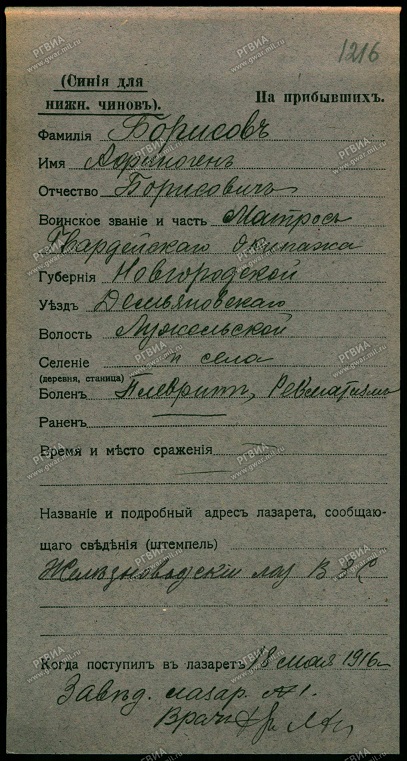 1216
(Синія для
нижн. чиновъ).
На прибывшихъ.
Фамилія Борисовъ
Имя
Отчество Борисовичъ
Воинское званіе и часть Матросъ
Гвардейскаго Экипажа
Губернія Новгородской
Уѣздъ Демьяновскаго
Волость
Селеніе села
(деревня, станица)
Боленъ Плевритъ, Ревматизмъ
Раненъ
Время и мѣсто сраженія
Названіе и подробный адресъ лазарета, сообщаю-
щаго свѣдѣнія (штемпель)
Желѣзноводскій лаз В З С
Когда поступилъ въ лазаретъ 18 мая 1916
Завѣд. лазар. №1.
Врачъ
РГВИА
www.gwar.mil.ru